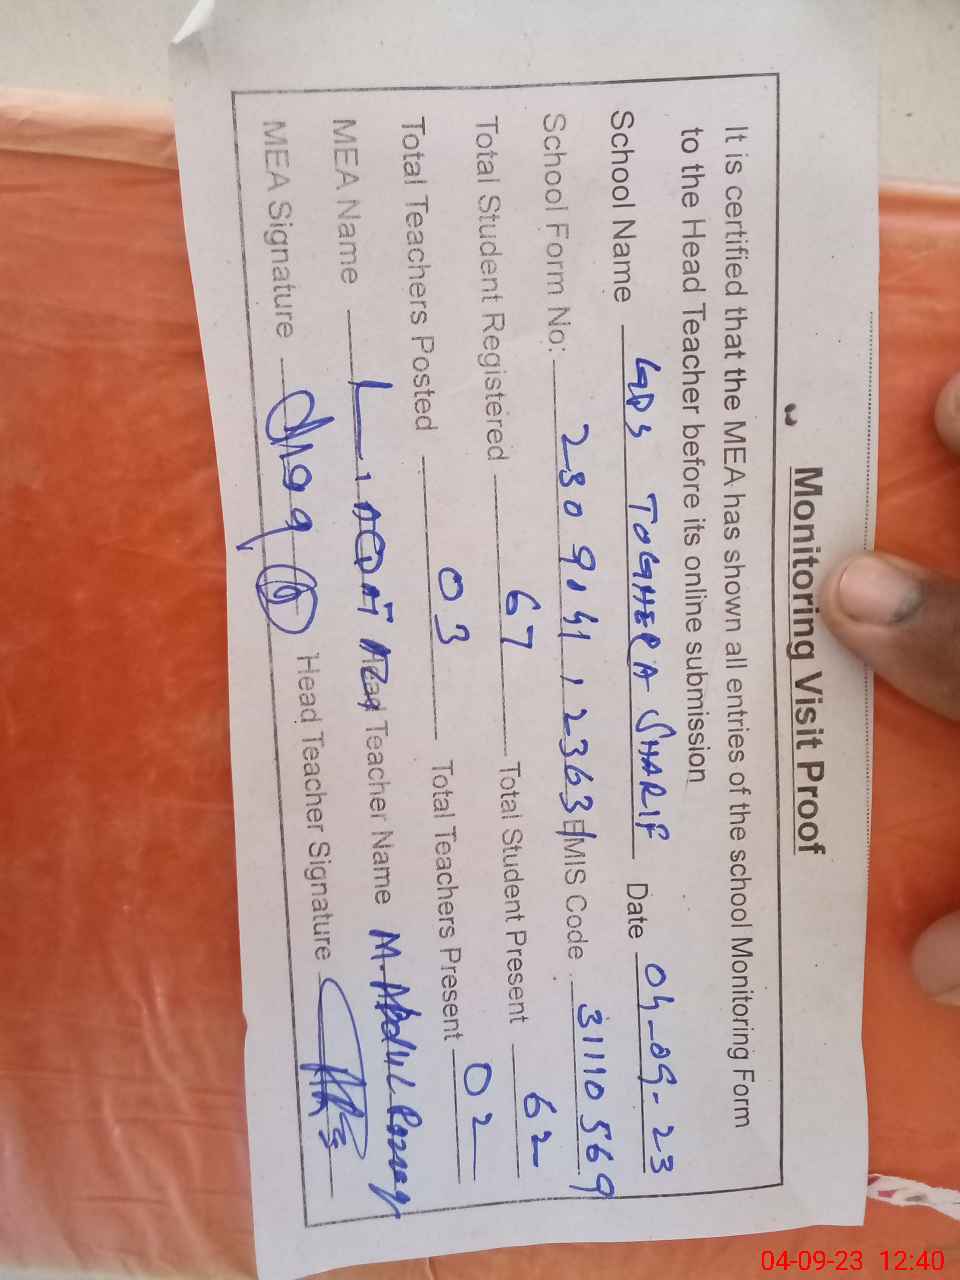 Monitoring Visit Proof
It is certified that the MEA has shown all entries of the school Monitoring Form
to the Head Teacher before its online submission
School Name GPS TOGHERA SHARIF Date 04-09-23
School Form No: EMIS Code 31110569
Total Student Registered 67 Total Student Present 62
Total Teachers Posted 03 Total Teachers Present 02
MEA Name Head Teacher Name M. Abdul
MEA Signature Head Teacher Signature
04-09-23 12:40